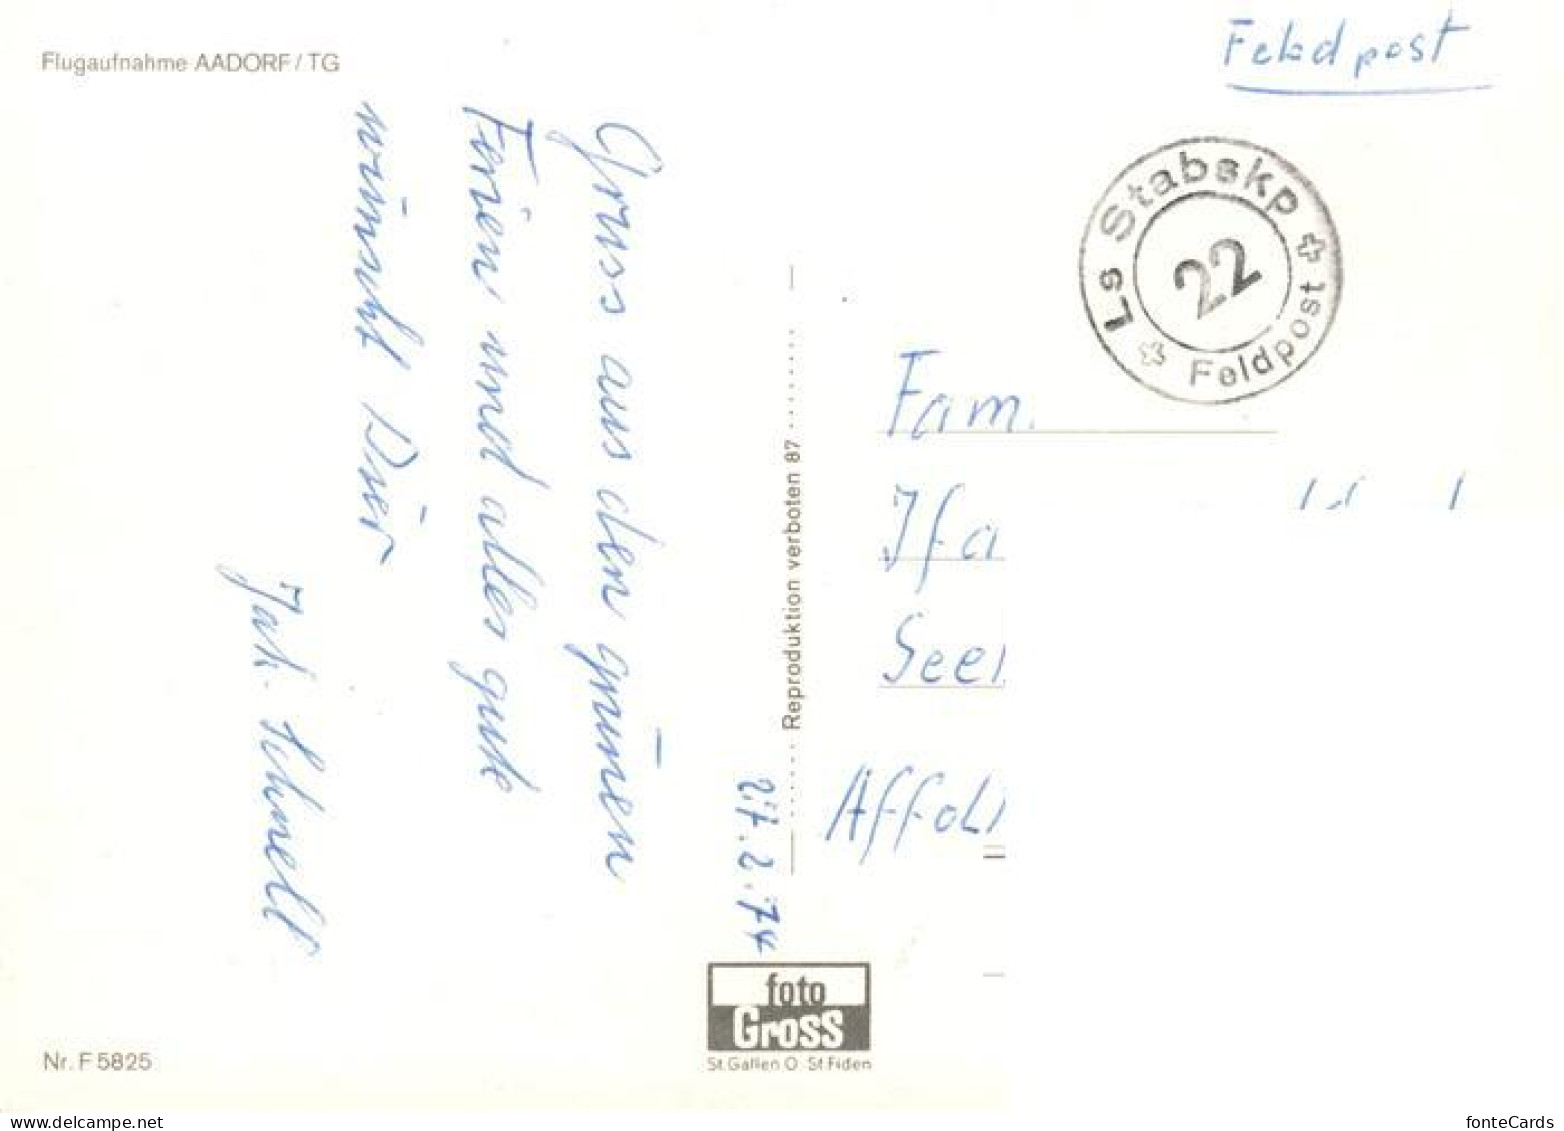 Flugaufnahme AADORF/TG
Feldpost
Ls Stabskp
22
Feldpost
Gruss aus den grünen
Ferien und alles gute
wünscht Dier
Jak. Schnell
27.2.74
Reproduktion verboten 87
Fam.
foto
Gross
St.Gallen O St.Fiden
Nr. F 5825
www.delcampe.net
fonteCards